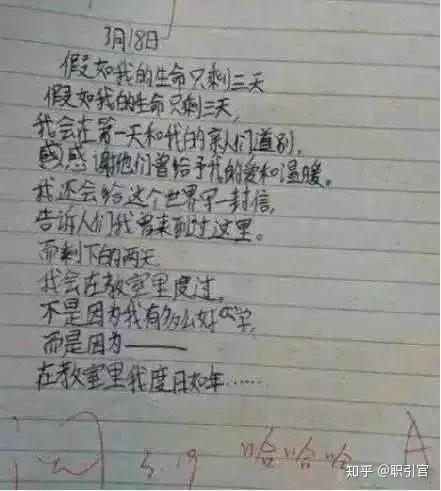 3月18日
假如我的生命只剩三天
假如我的生命只剩三天,
我会在第一天和我的亲人们道别,
感感谢他们曾给予我的爱和温暖。
我还会给这个世界写一封信,
告诉人们我曾来到过这里。
而剩下的两天
我会在教室里度过,
不是因为我有多么好学,
而是因为——
在教室里我度日如年……
阅
3.19
哈哈哈
A
知乎 @职引官